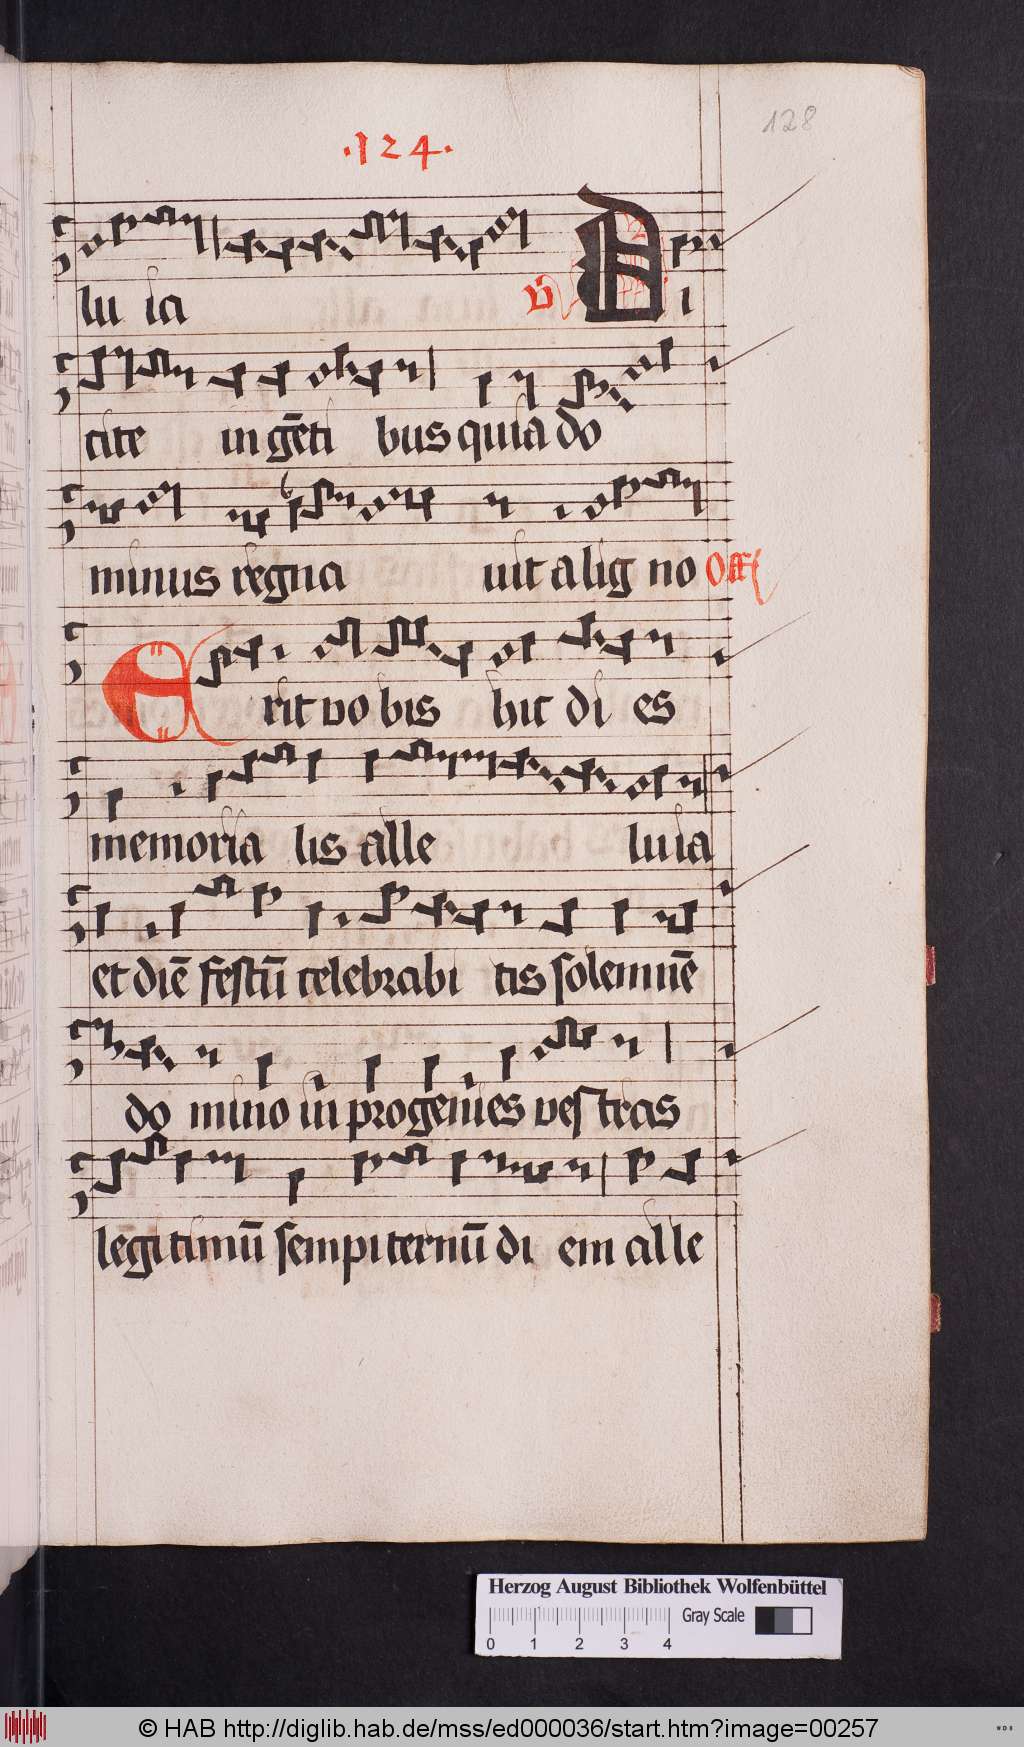 128
·124·
lu ia ℣ D i
cite in gēti bus quia do
minus regna uit a lig no Off
E rit vo bis hic di es
memoria lis alle luia
et diē festū celebrabi tis solemnē
do mino in progenies vestras
legitimū sempiternū di em alle
Herzog August Bibliothek Wolfenbüttel
0 1 2 3 4 Gray Scale
© HAB http://diglib.hab.de/mss/ed000036/start.htm?image=00257